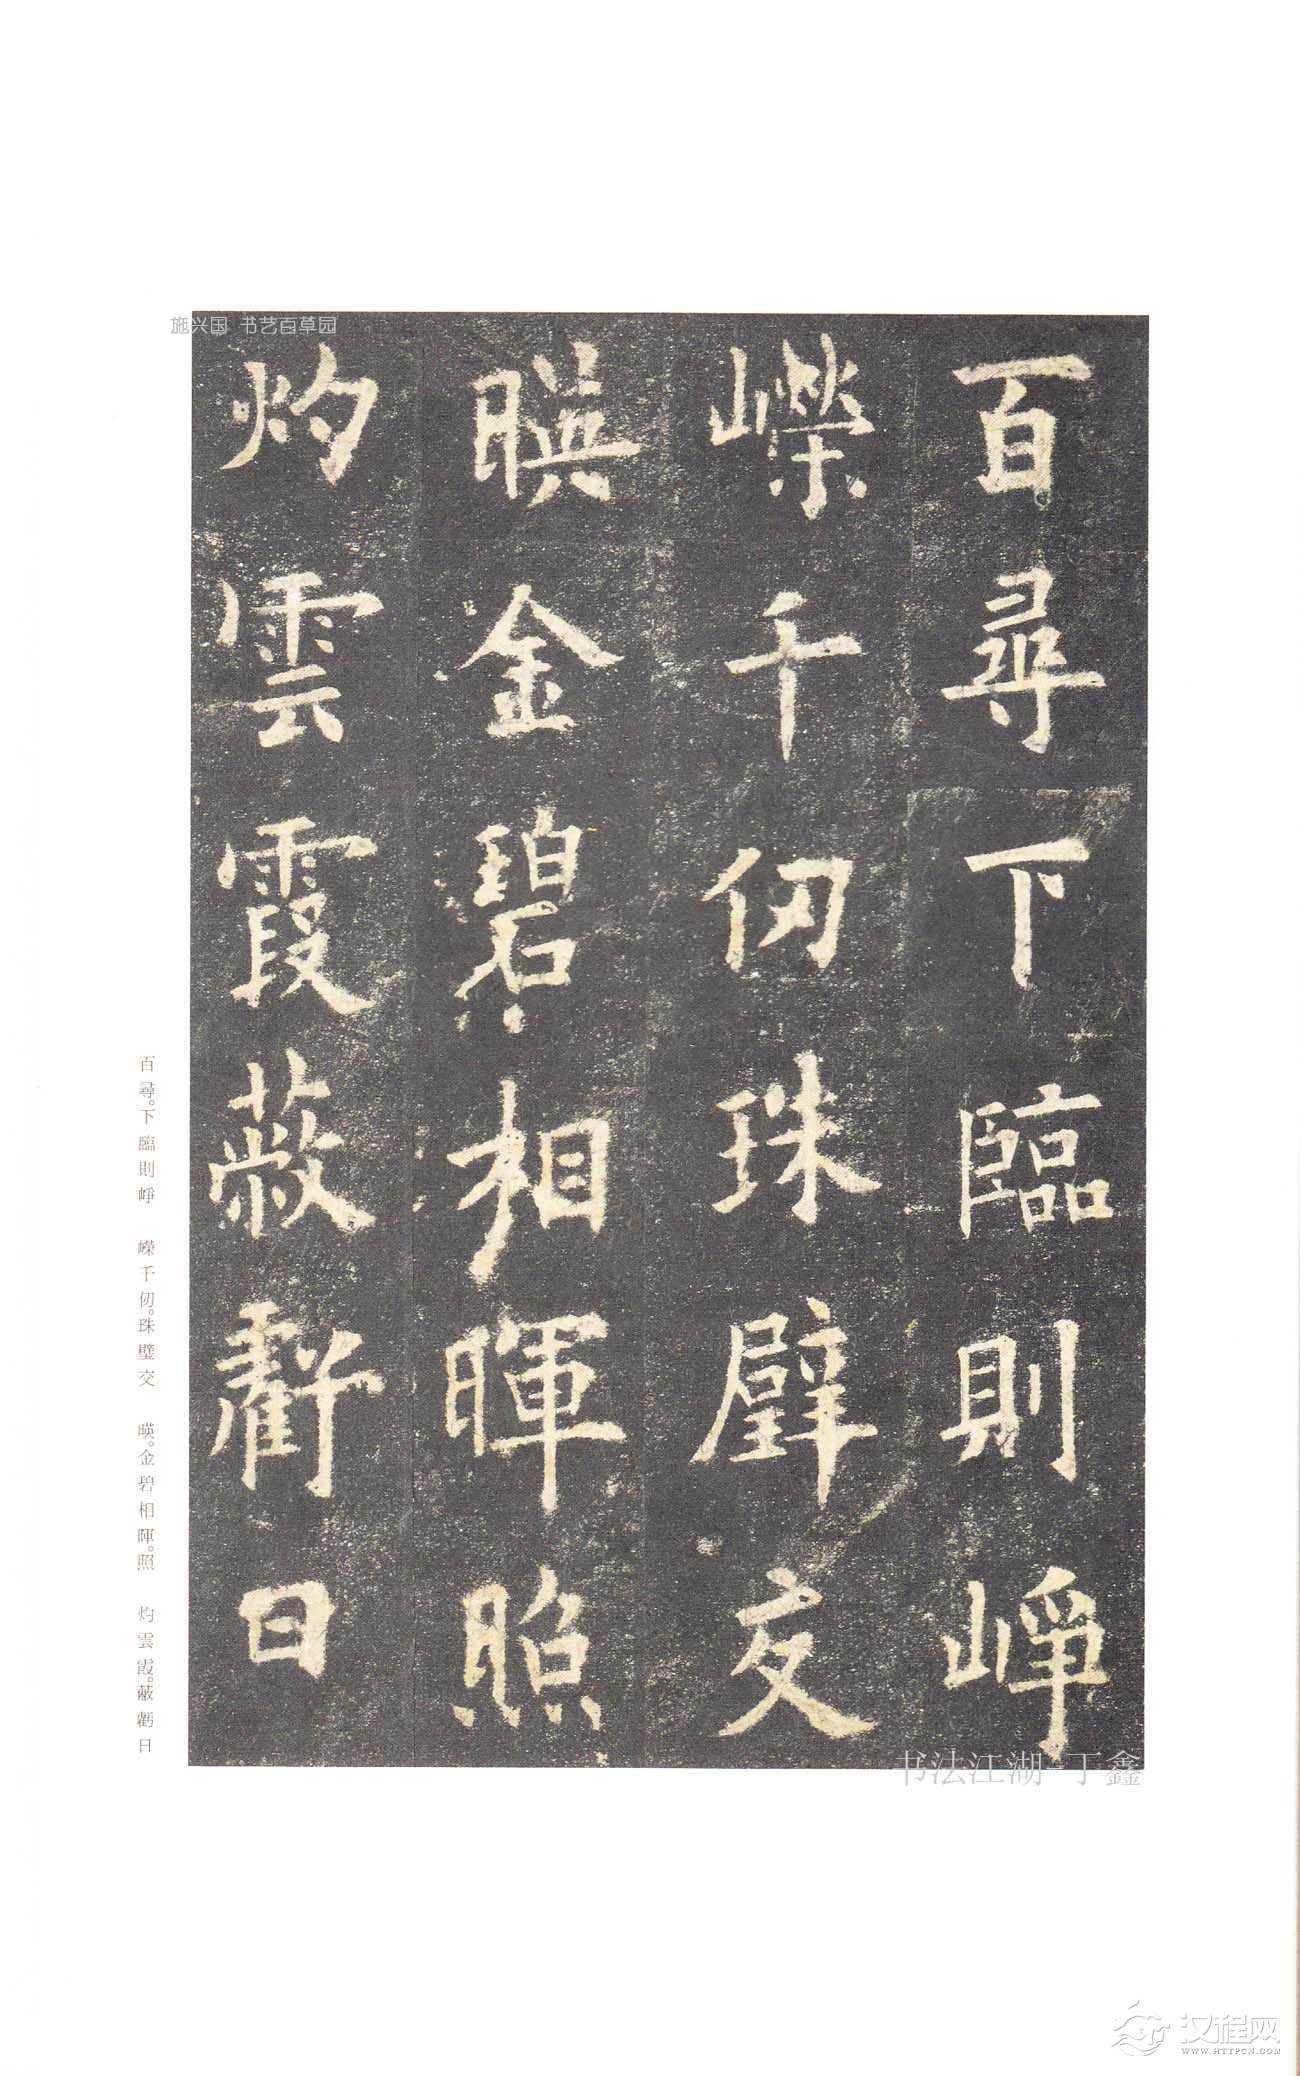 施兴国 书艺百草园
百尋下臨則崢
嶸千仞珠璧交
暎金碧相暉照
灼雲霞蔽虧日
百尋。下臨則崢 嶸千仞。珠璧交 暎。金碧相暉。照 灼雲霞。蔽虧日
书法江湖-丁鑫
汉程网
WWW.HTTPCN.COM